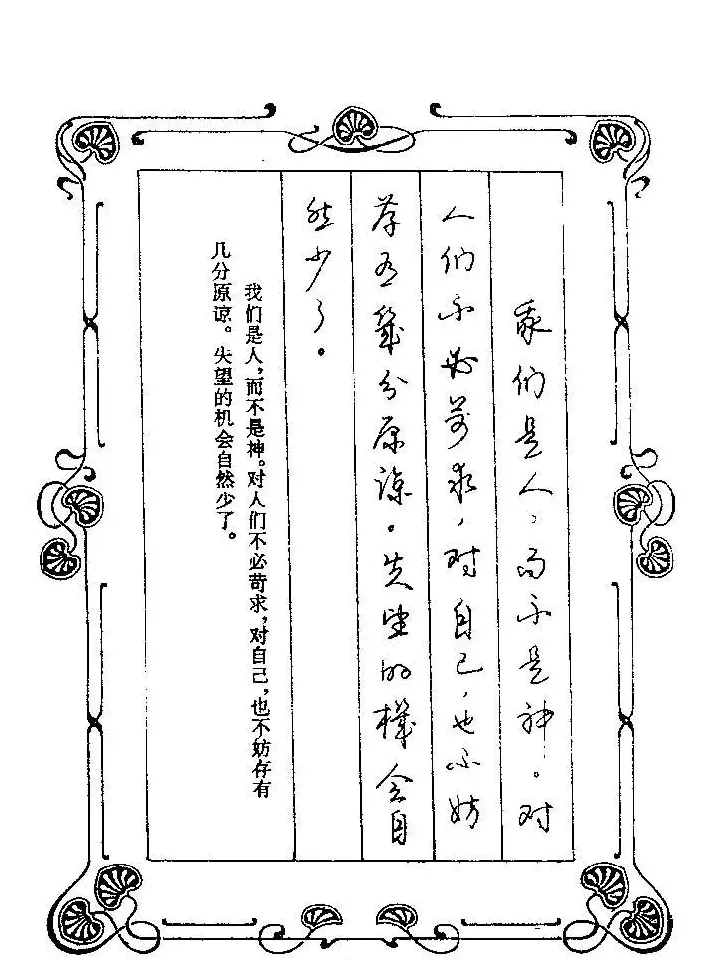 我们是人，而不是神。对
人们不必苛求，对自己，也不妨
存有几分原谅。失望的机会自
然少了。
我们是人，而不是神。对人们不必苛求，对自己，也不妨存有
几分原谅。失望的机会自然少了。